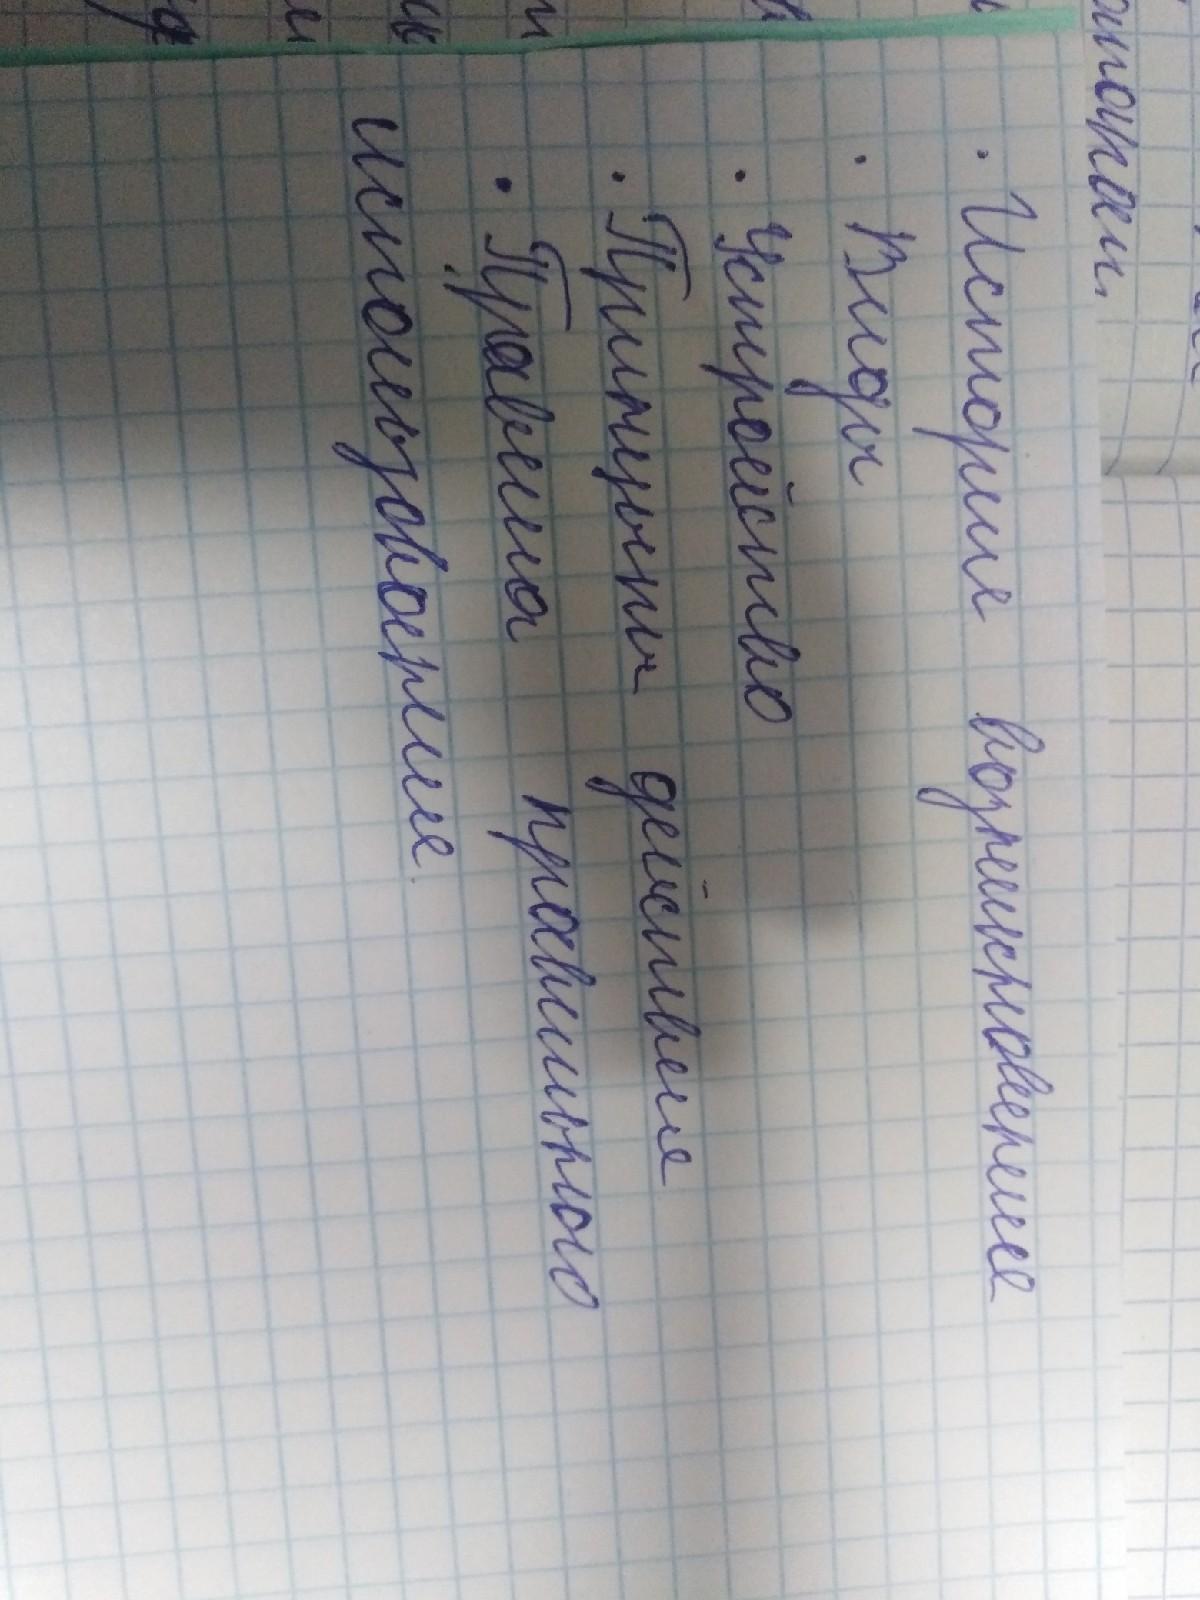 · История возникновение
· Виды
· Устройство
· Принцыпы действия
· Правела правильного
использования.